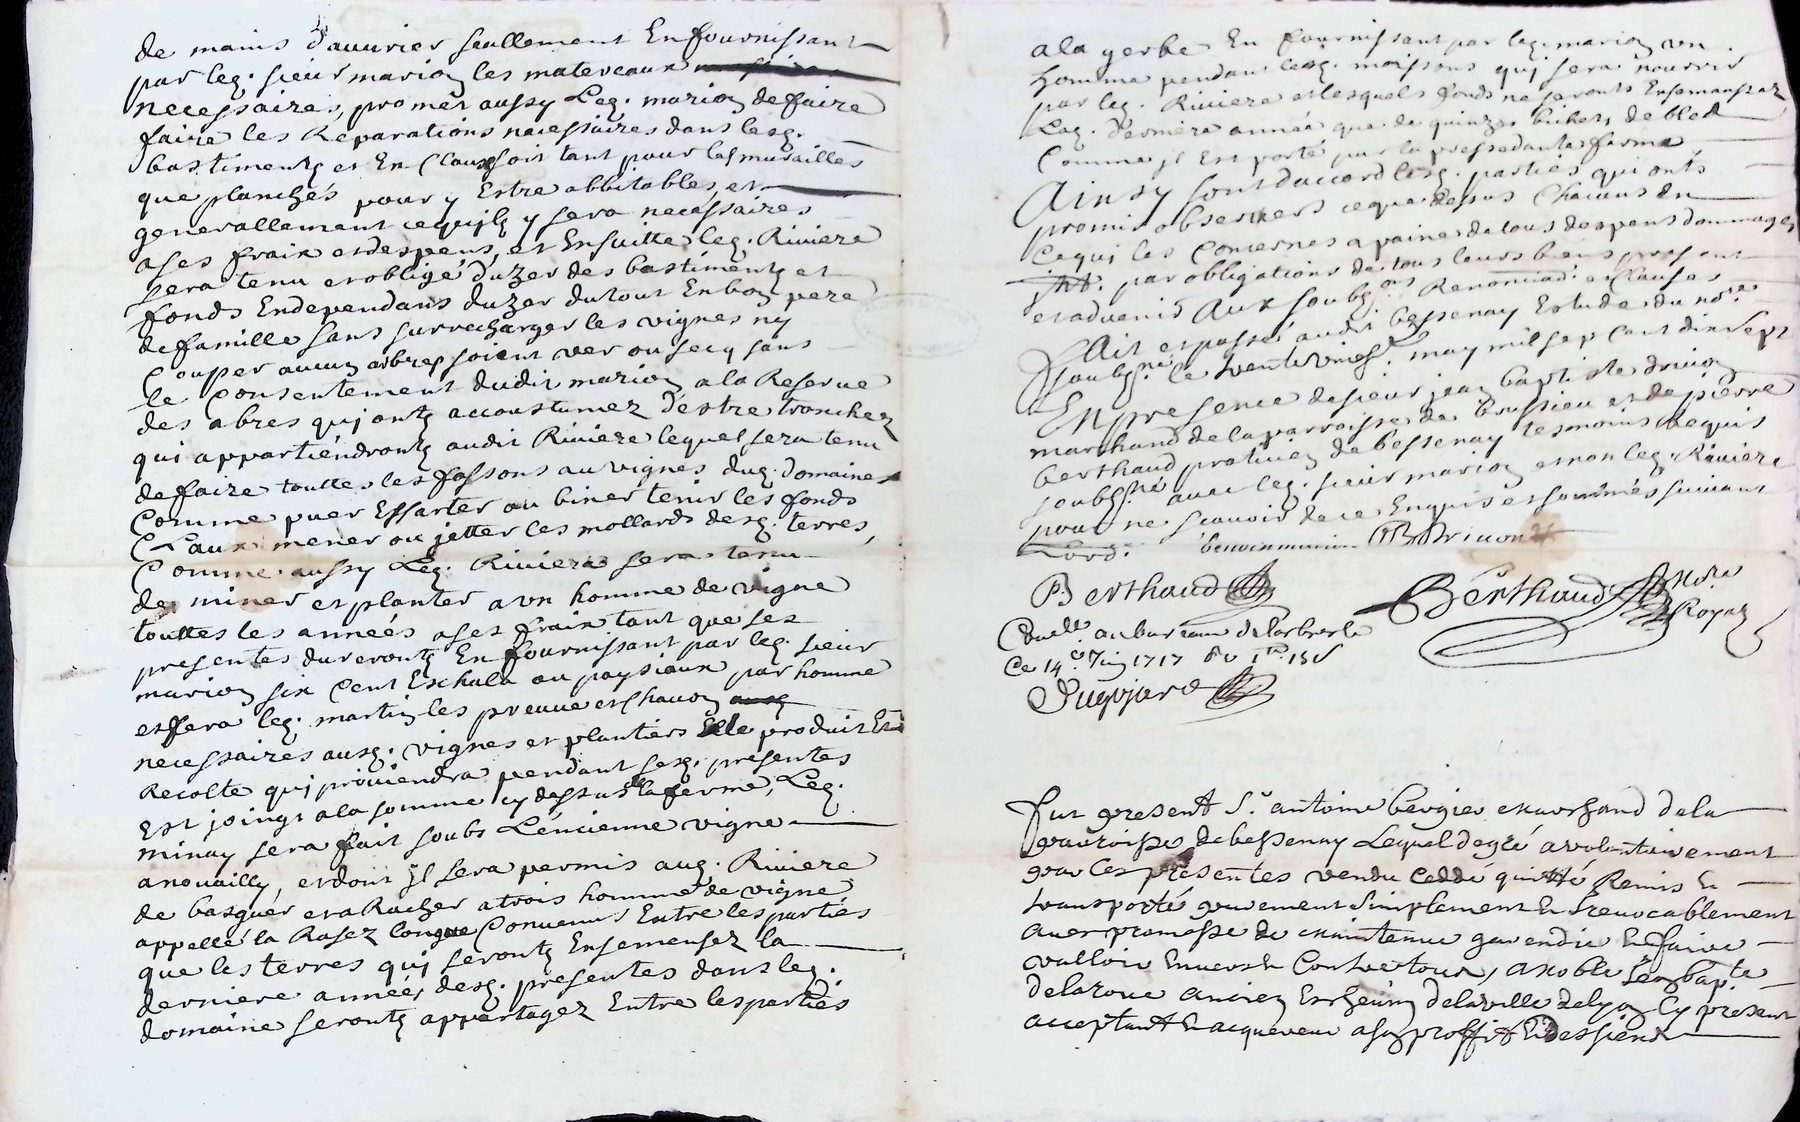 de mains d'auurier seullement En fournissant
par leq. sieur marion les matereaux
necessaires, promet aussy Leq. marion de faire
faire les Reparations necessaires dans lesq.
bastimentz et En Claux soit tant pour les murailles
que planchés pour y Estre abbitables, et
generallement ce quilz y sera necessaires
a ses fraix et despens, et Ensuitte leq. Riviere
sera tenu et obligé d'uzer des bastimentz et
fonds Endependans d'uzer du tout En bon pere
de famille sans surrecharger les vignes ny
Couper aucun arbres soient ver ou secq sans
le Consentement dudit marion a la Reserue
des abres quj ontz accoustumez d'estre tranchez
qui appartiendrontz audit Riviere lequel sera tenu
de faire touttes les fassons au vignes duq. domaine
Comme puer Essarter ou biner tenir les fonds
Claux mener ou jetter les mollards desq. terres,
Comme aussy Leq. Riviere sera tenu
de miner et planter a vn homme de vigne
touttes les années a ses fraix tant que ses
presentes dureront En fournissant par leq. sieur
marion six Cent Eschala ou paysiaux par homme
et fera leq. martin les preuue et Chauon
necessaires ausq. vignes et plantiers Ele produit Et
Recolte quj prouiendra pendant sesq. presentes
Est joingt a la somme cy dessus de la ferme, Leq.
minay sera fait soubs L'encienne vigne
anouailly, et dont jl sera permis auq. Riviere
de basquer et a Racher a trois homme de vigne
appellé la Rasez longue Convenus Entre les parties
que les terres quj seront Ensemensez la
derniere année desq. presentes dans leq.
domaine serontz appartagez Entre les parties
a la gerbe En fournissant par leq. marion vn
homme pendant lesq. moissons quj sera nourrir
par leq. Riviere et lesquels fonds ne seronts Ensemansez
Laq. derniere année que de quinze bichets de bled
Comme jl Est porté par la pressedante ferme
Ainsy sont d'accord lesq. parties qui onts
promis obseruers ce que dessus Chacuns En
ce qui les Concernes a paine de tous despens dommages
par obligations de tous leurs biens present
et aduenir Aux soubz.ons Renonciad. et Clauses
Fait et passé audit bessenay Estude du no.re
soubz.né le vingt may mil sept Cent dix sept
En presence de sieur jean baptiste drivon
marchand de la parroisse de brussieu et de pierre
berthaud praticien de bessenay tesmoins Requis
soubz.né avec leq. sieur marion et non leq. Riviere
pour ne scauoir de ce Enquis et sommés suiuant
Lord.
Berthaud Berthaud no.re Royal
Con.lle au bureau de larbresle
ce 14.e Juin 1717
fut present S.r antoine bergier marchand de la
parroisse de bessenay Lequel de gré a volontairement
par Ces presentes vendu Ceddé quitté Remis Et
transporté purement simplement Et Ireuocablement
auec promesse de maintenue garendie Et faire
valloir Enuers Et Contre tous, a noble Jean bap.te
delaroue ancien Escheuin de la ville de lyon Cy present
acceptant Et acquereur a son proffit Et des siens